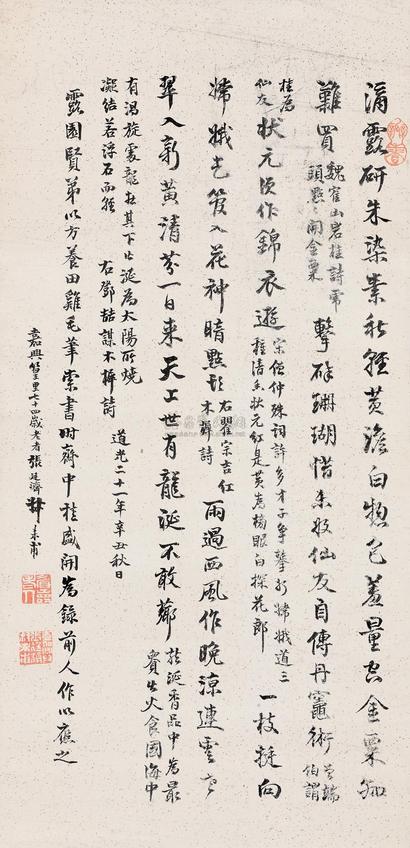 滴露研朱染素秋輕黃澹白總包羞量空金粟知
難買魏崔山岩桂詩虎
頭點點開金粟
擊碎珊瑚惜未收仙友自傳丹竈術曾端
伯謂
桂為
仙友
狀元須作錦衣遊宋僧仲殊詞許多才子爭攀折嫦娥道三
種清香狀元紅是黃為榜眼白探花郎
一枝擬向
嫦娥乞笑入花神暗點頭右瞿宗吉紅
木犀詩
雨過西風作晚涼連雲老
翠入新黃清芬一日來天工世有龍涎不敢薌龍涎香品中為最
出大食國海中
有渦旋處龍在其下吐涎為太陽所爍
凝結若浮石而輕 右鄧志謀木樨詩
道光二十一年辛丑秋日
露園賢弟以方養田雞毛筆索書時齋中桂盛開為錄前人作以應之
嘉興竹里七十四歲老者張廷濟叔未甫